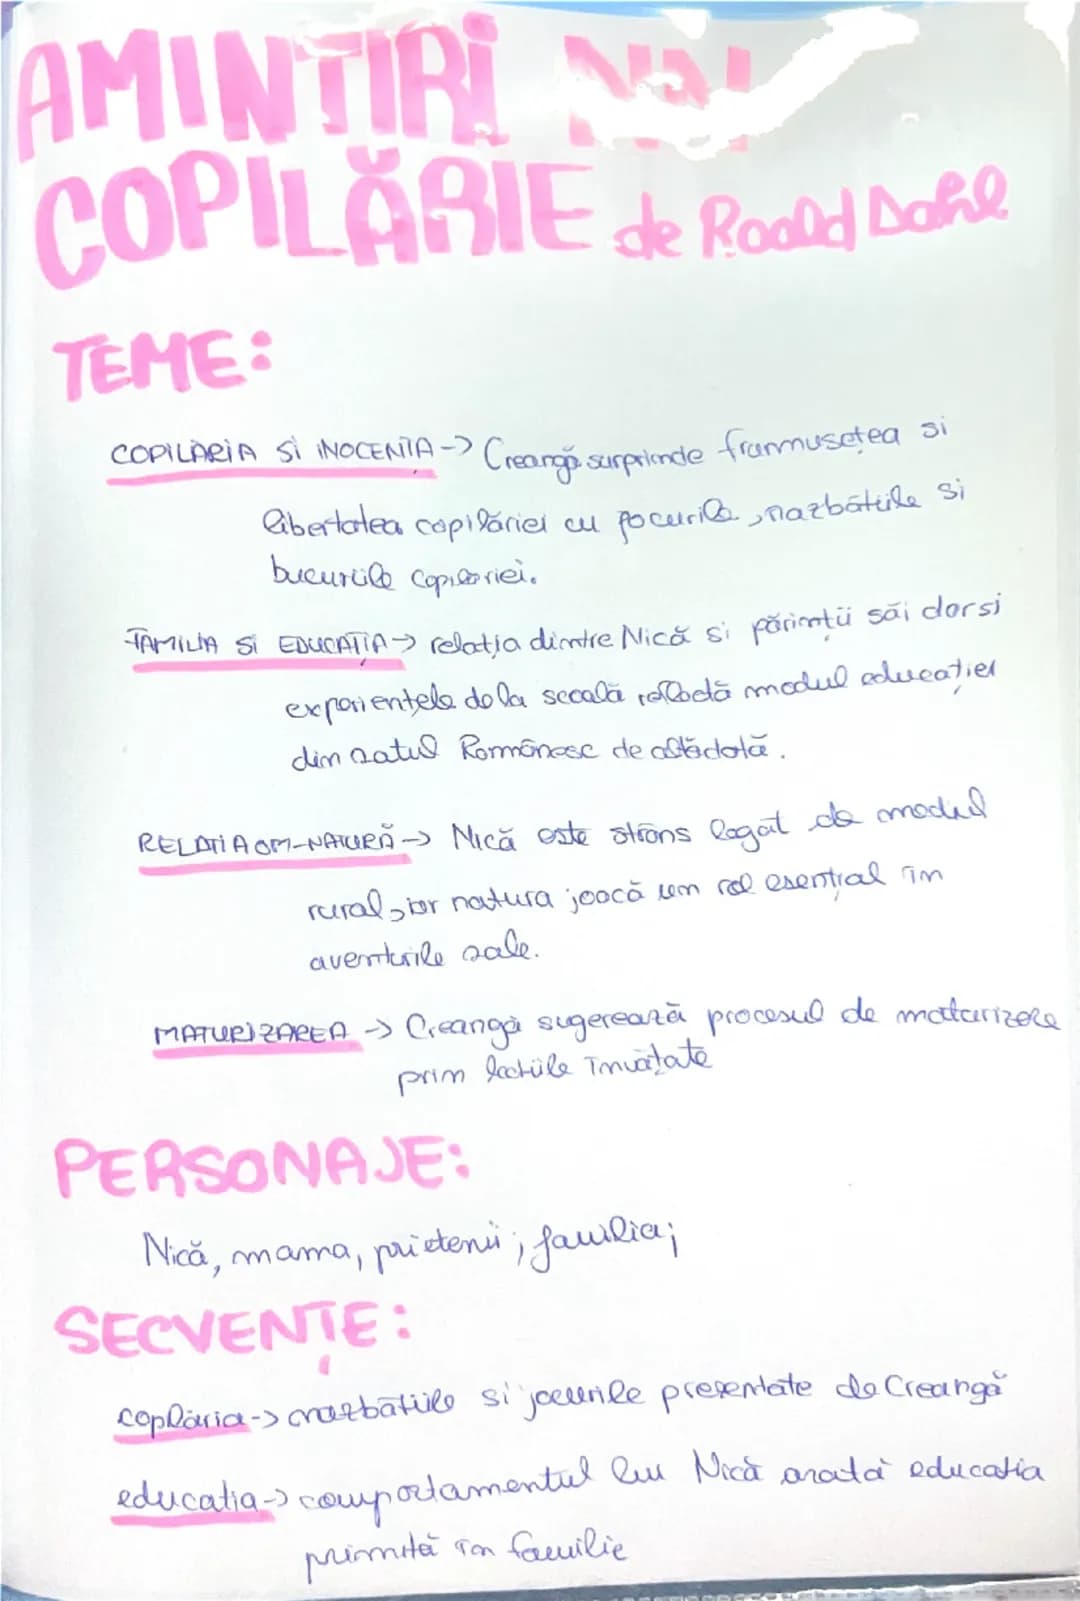 AMINTIRI DIN
COPILĂRIE de Roald Dahl
TEME:
COPILĂRIA SI INOCENTA -> Creangă surprinde frumusețea si
libertatea copilăriei cu jocurile, nazbâtiile si
bucuriile copilariei.
FAMILIA SI EDUCATIA -> relația dintre Nică si părinții săi dar si
experiențele de la scoală reflectă modul educației
din satul Românesc de altădată.
RELATIA OM-NATURĂ -> Nică este strâns legat de mediul
rural, iar natura joacă un rol esențial în
aventurile sale.
MATURIZAREA -> Creangă sugerează procesul de maturizere
prin lectiile învățate
PERSONAJE:
Nică, mama, prietenii; familia;
SECVENȚE:
copilăria -> nazbâtiile si jocurile prezentate de Creangă
educatia -> comportamentul lui Nică arată educatia
primită în familie